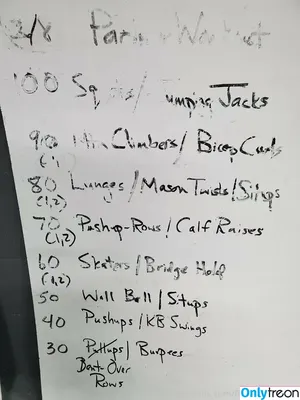 100 Squats/ Jumping Jacks
90 Mtn Climbers/ Bicep Curls
80 Lunges / Mason Twists/Situps
(1,2)
70 Pushup-Rows / Calf Raises
(1,2)
60 Skaters / Bridge Hold
(1,2)
50 Wall Ball / Situps
40 Pushups / KB Swings
30 Pullups / Burpees
Bent Over
Rows
Onlytreon